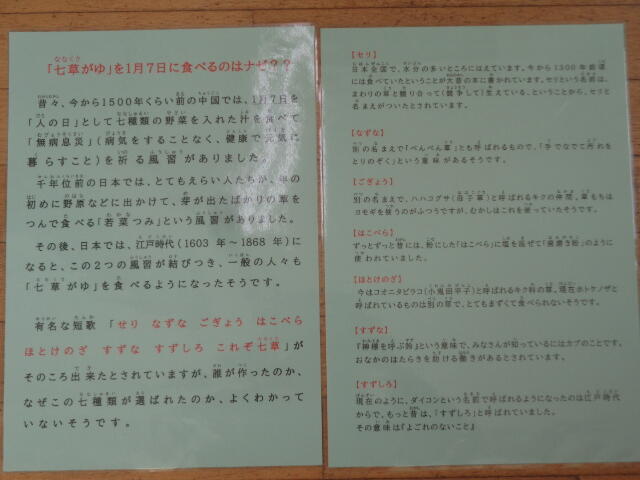 「七草がゆ」を1月7日に食べるのはナゼ??
昔々、今から1500年くらい前の中国では、1月7日を
「人の日」として七種類の野菜を入れた汁を食べて
「無病息災」(病気をすることなく、健康で元気に
暮らすこと)を祈る風習がありました。
千年位前の日本では、とてもえらい人たちが、年の
初めに野原などに出かけて、芽が出たばかりの草を
つんで食べる「若菜つみ」という風習がありました。
その後、日本では、江戸時代(1603 年～1868 年)に
なると、この2つの風習が結びつき、一般の人々も
「七草がゆ」を食べるようになったそうです。
有名な短歌 「せり なずな ごぎょう はこべら
ほとけのざ すずな すずしろ これぞ七草」が
そのころ出来たとされていますが、誰が作ったのか、
なぜこの七種類が選ばれたのか、よくわかって
いないそうです。
【セリ】
日本全国で、水分の多いところにはえています。今から1300年前頃
には食べていたということが大昔の本に書かれています。セリという名前は、
まわりの草と競り合って(競争して)生えている、ということから、セリと
名まえがついたとされています。
【なずな】
別の名まえで「ぺんぺん草」とも呼ばれるもので、「手でなでて汚れを
とりのぞく」という意味があるそうです。
【ごぎょう】
別の名まえで、ハハコグサ(母子草)と呼ばれるキクの仲間。草もちは
ヨモギを使うのがふつうですが、むかしはこれを使っていたそうです。
【はこべら】
ずっとずっと昔には、粉にした「はこべら」に塩を混ぜて「歯磨き粉」のように
使われていました。
【ほとけのざ】
今はコオニタビラコ(小鬼田平子)と呼ばれるキク科の草。現在ホトケノザと
呼ばれているものは別の草で、とてもまずくて食べられないそうです。
【すずな】
『神様を呼ぶ鈴』という意味で、みなさんが知っているにはカブのことです。
おなかのはたらきを助ける働きがあるとされています。
【すずしろ】
現在のように、ダイコンという名前で呼ばれるようになったのは江戸時代
からで、もっと昔は、「すずしろ」と呼ばれていました。
その意味は『よごれのないこと』